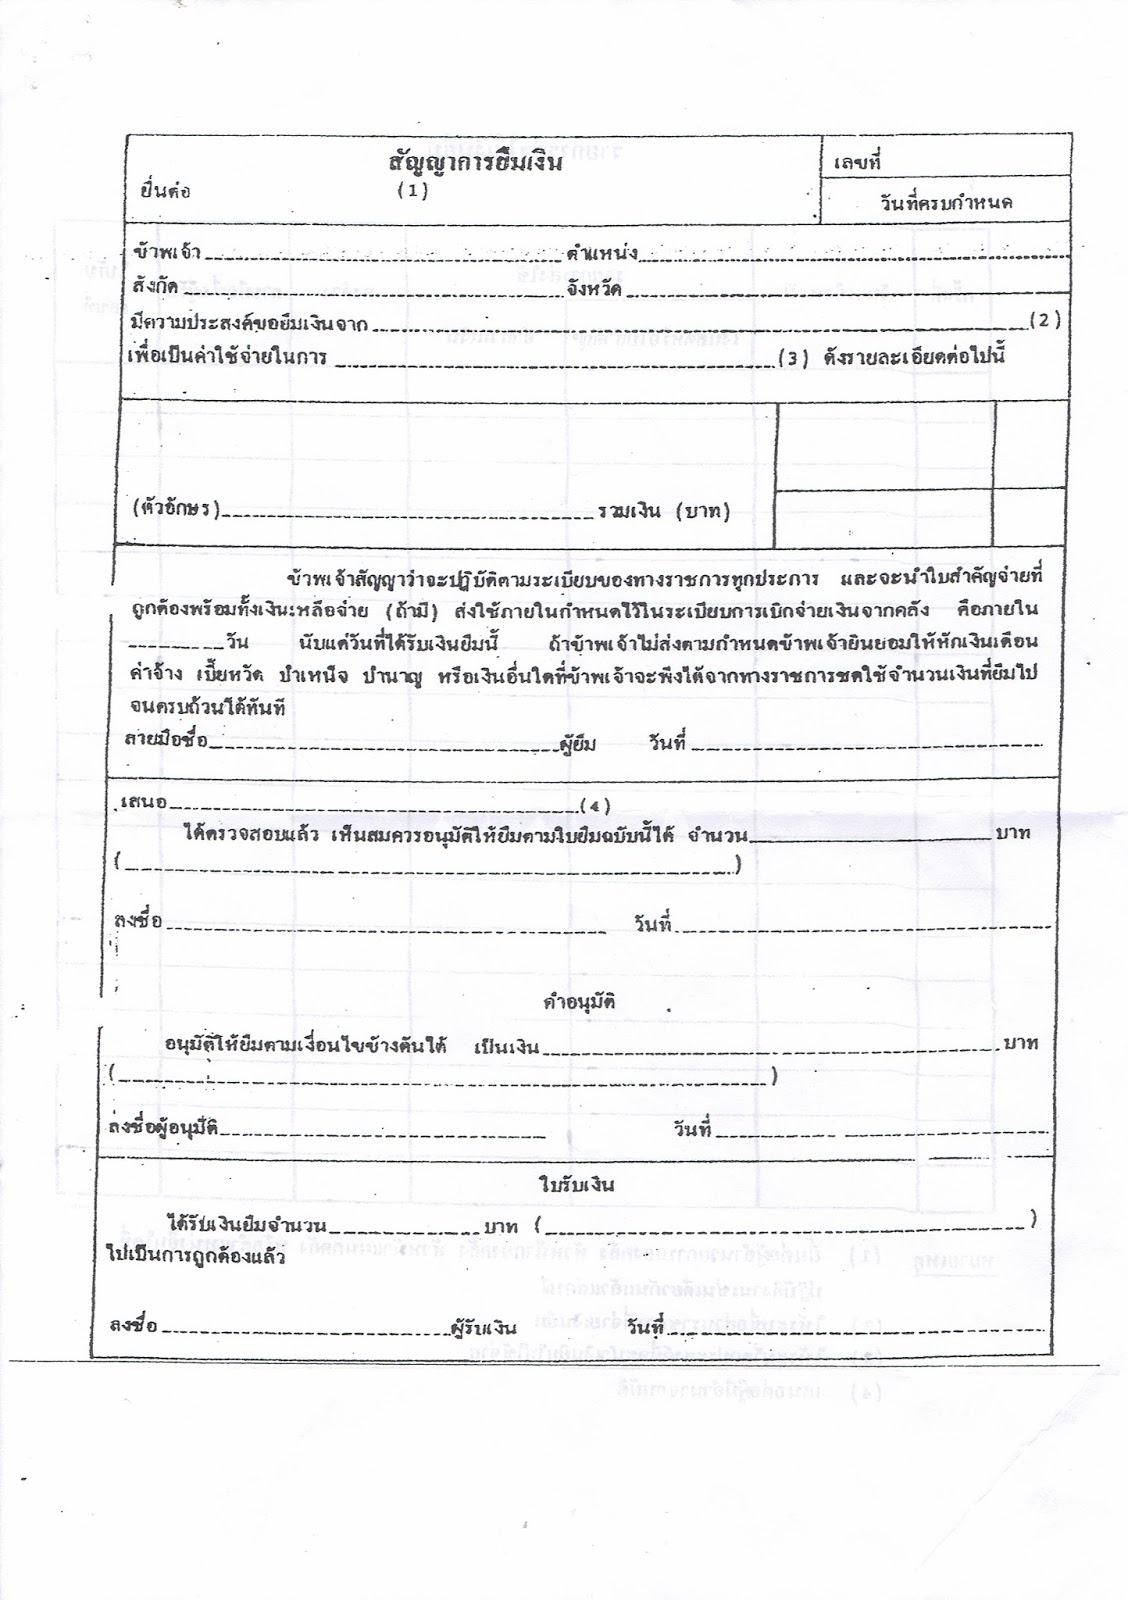 สัญญาการยืมเงิน
เลขที่
ยื่นต่อ (1)
วันที่ครบกำหนด
ข้าพเจ้า ตำแหน่ง
สังกัด จังหวัด
มีความประสงค์ขอยืมเงินจาก (2)
เพื่อเป็นค่าใช้จ่ายในการ (3) ดังรายละเอียดต่อไปนี้
(ตัวอักษร) รวมเงิน (บาท)
ข้าพเจ้าสัญญาว่าจะปฏิบัติตามระเบียบของทางราชการทุกประการ และจะนำใบสำคัญจ่ายที่
ถูกต้องพร้อมทั้งเงินเหลือจ่าย (ถ้ามี) ส่งใช้ภายในกำหนดไว้ในระเบียบการเบิกจ่ายเงินจากคลัง คือภายใน
วัน นับแต่วันที่ได้รับเงินยืมนี้ ถ้าข้าพเจ้าไม่ส่งตามกำหนดข้าพเจ้ายินยอมให้หักเงินเดือน
ค่าจ้าง เบี้ยหวัด บำเหน็จ บำนาญ หรือเงินอื่นใดที่ข้าพเจ้าจะพึงได้จากทางราชการชดใช้จำนวนเงินที่ยืมไป
จนครบถ้วนได้ทันที
ลายมือชื่อ ผู้ยืม วันที่
เสนอ (4)
ได้ตรวจสอบแล้ว เห็นสมควรอนุมัติให้ยืมตามใบยืมฉบับนี้ได้ จำนวน บาท
( )
ลงชื่อ วันที่
คำอนุมัติ
อนุมัติให้ยืมตามเงื่อนไขข้างต้นได้ เป็นเงิน บาท
( )
ลงชื่อผู้อนุมัติ วันที่
ใบรับเงิน
ได้รับเงินยืมจำนวน บาท ( )
ไปเป็นการถูกต้องแล้ว
ลงชื่อ ผู้รับเงิน วันที่